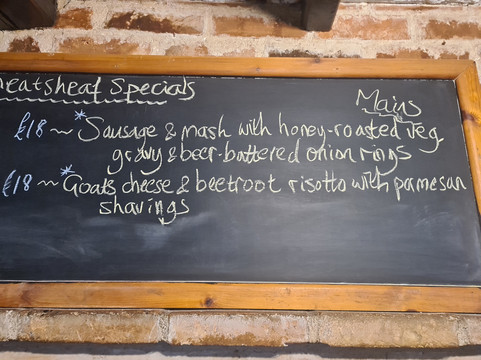 heatsheaf Specials
Mains
£18 ~ *Sausage & mash with honey-roasted veg,
gravy & beer-battered onion rings
£18 ~ *Goats cheese & beetroot risotto with parmesan
shavings